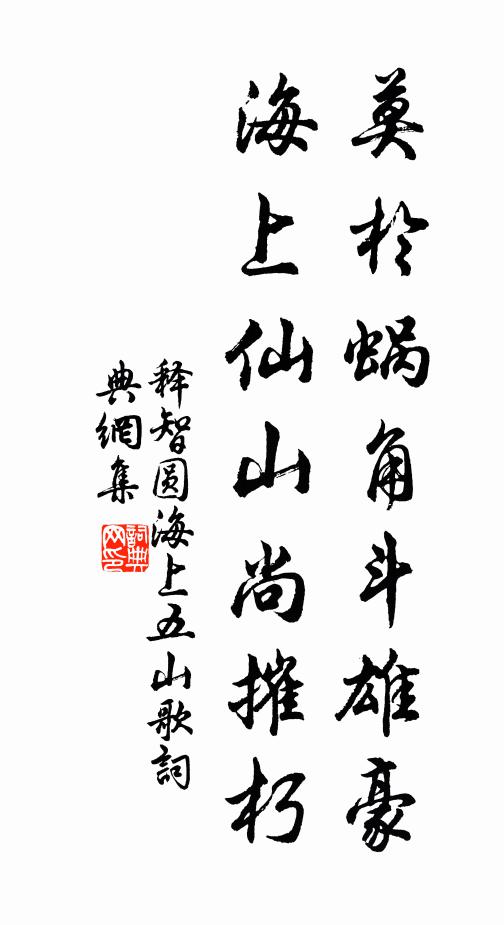 莫於蝸角斗雄豪
海上仙山尚摧朽
释智圆海上五山歌詞
典網集
詞典
网印